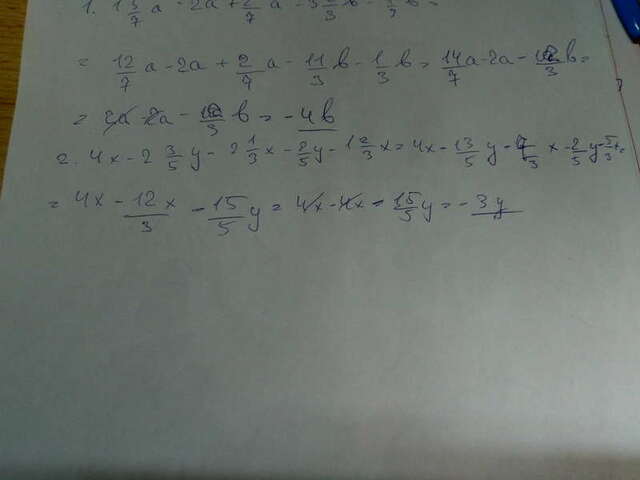 1. 1 5/7 a - 2a + 2/7 a - 3 2/3 b - 1/3 b =
= 12/7 a - 2a + 2/7 a - 11/3 b - 1/3 b = 14/7 a - 2a - 12/3 b =
= 2a - 2a - 12/3 b = - 4b
2. 4x - 2 3/5 y - 2 1/3 x - 2/5 y - 1 2/3 x = 4x - 13/5 y - 7/3 x - 2/5 y - 5/3 x =
= 4x - 12x/3 - 15/5 y = 4x - 4x - 15/5 y = - 3y